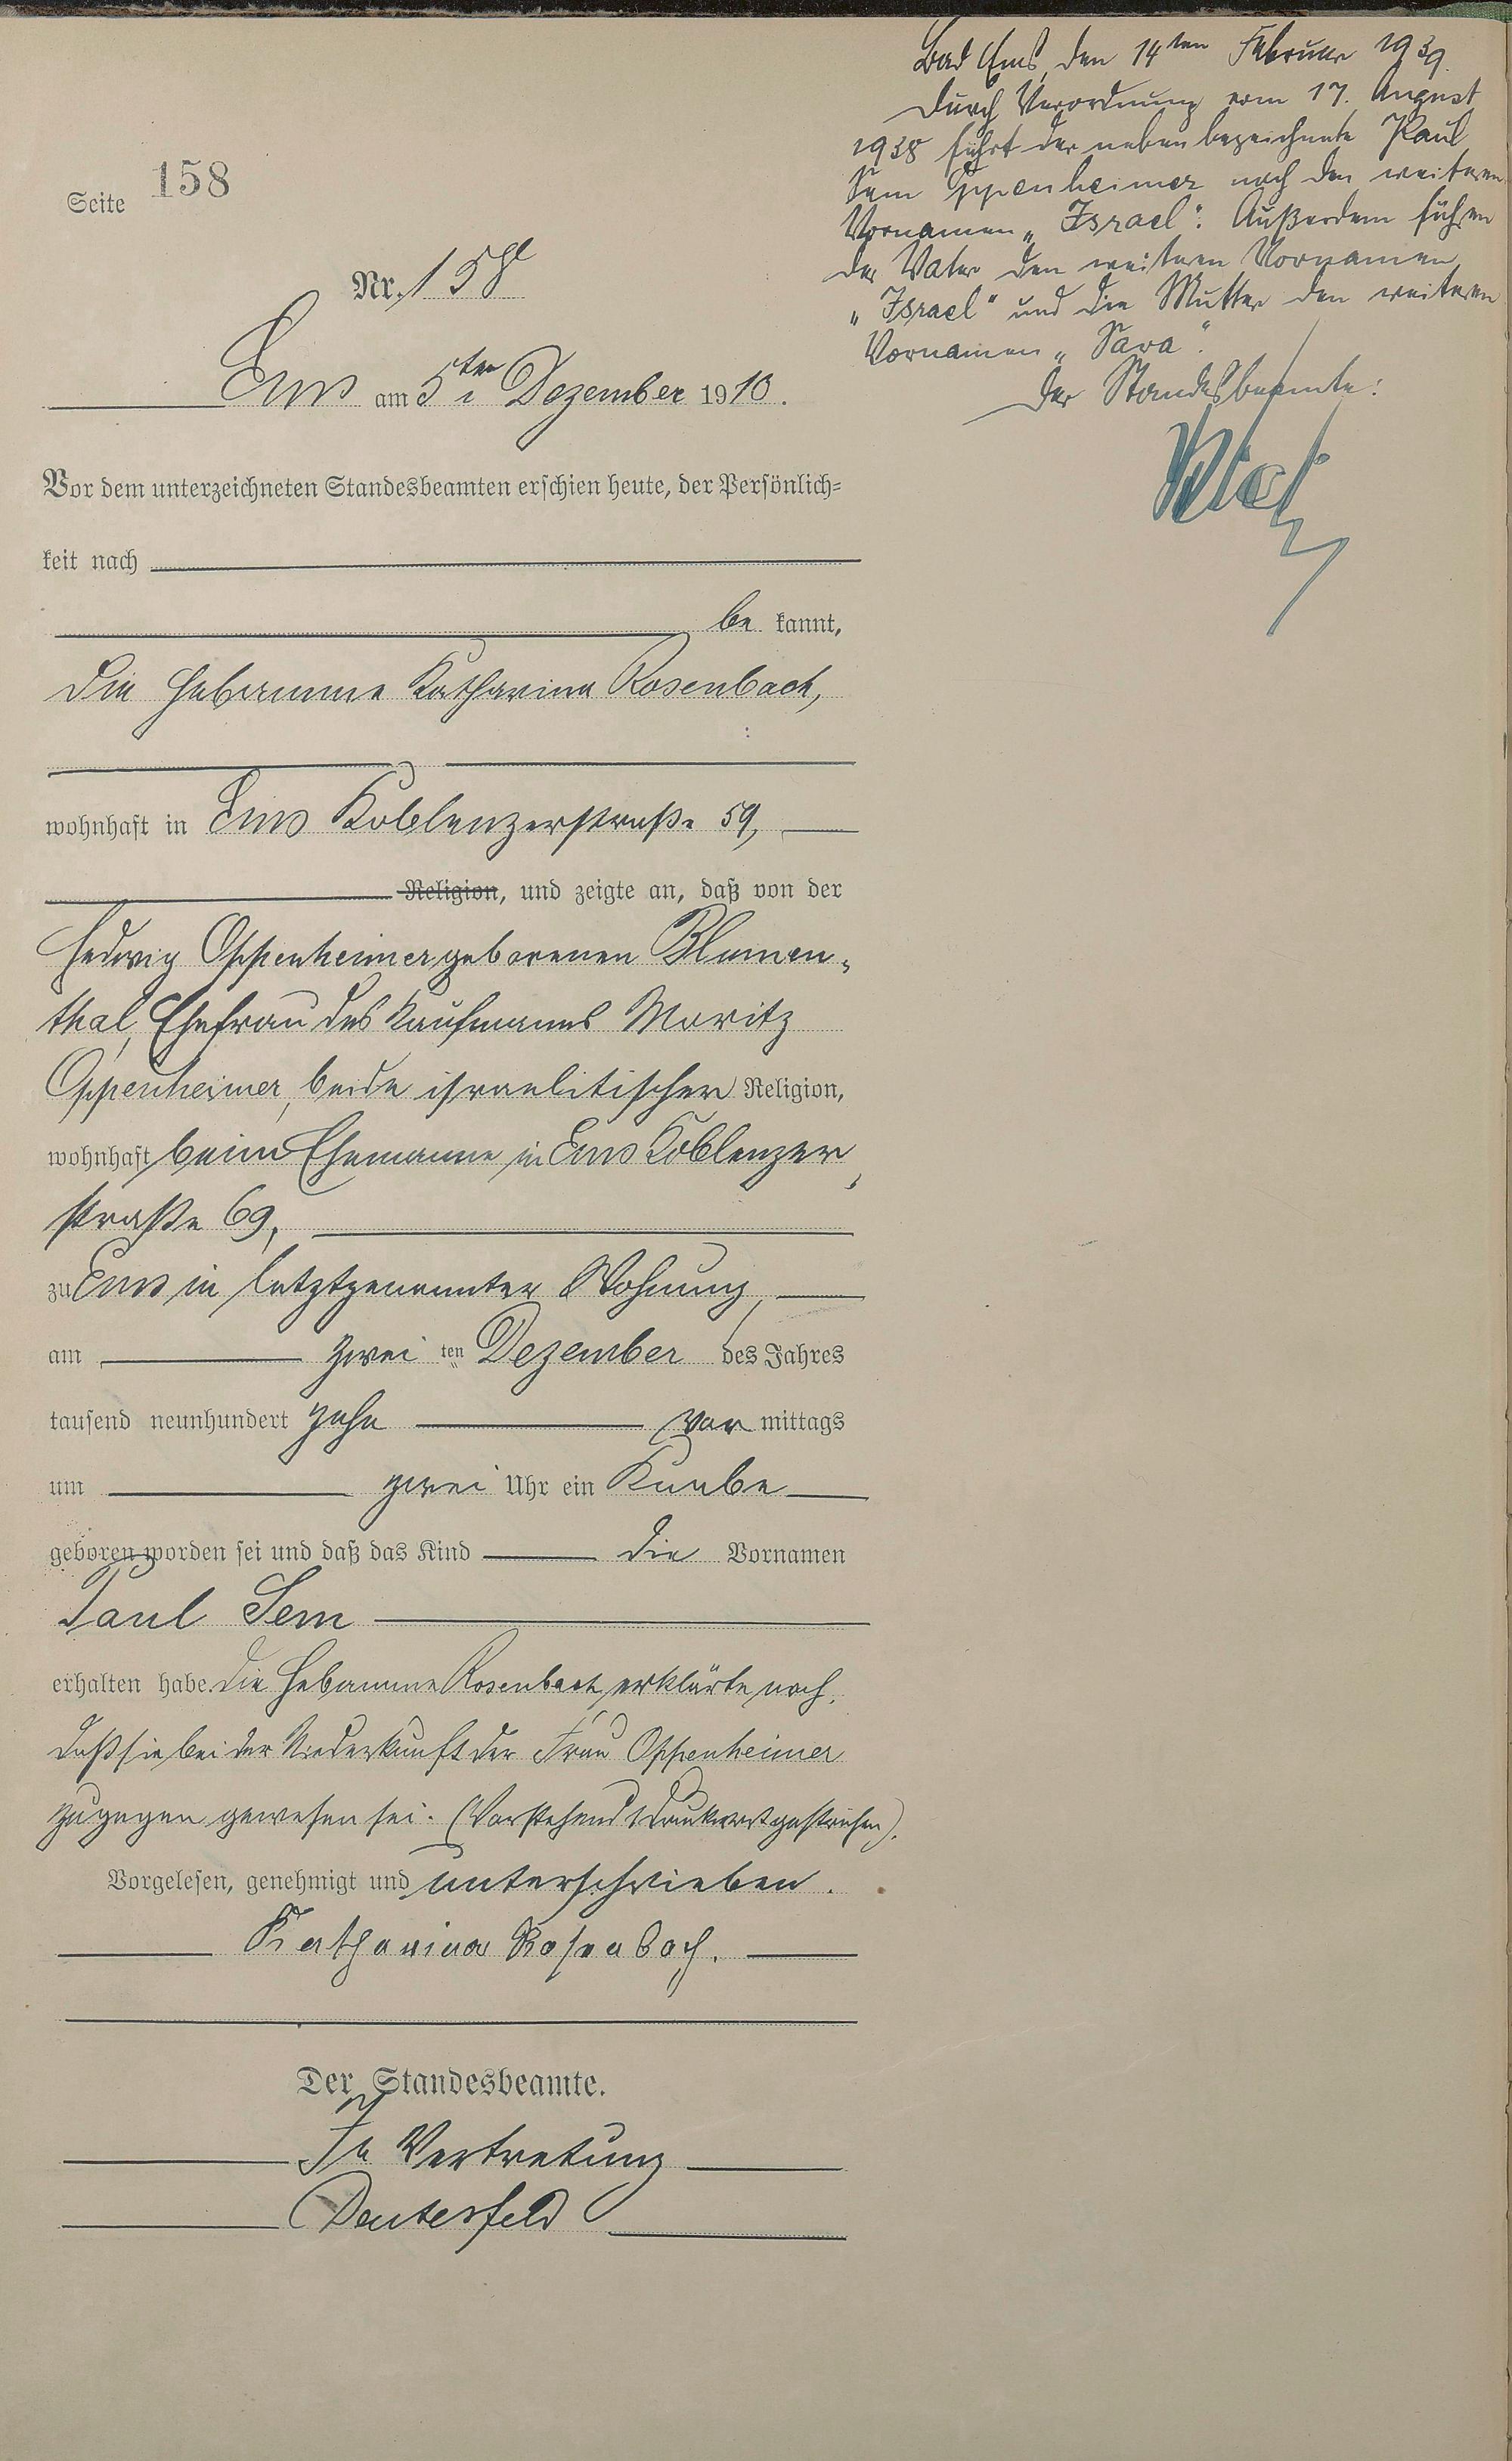 Seite 158
Nr. 158
Ems am 5ten Dezember 1910.
Vor dem unterzeichneten Standesbeamten erschien heute, der Persönlich-
keit nach
be kannt,
die Hebamme Katharina Rosenbach,
wohnhaft in Ems Koblenzerstraße 59,
Religion, und zeigte an, daß von der
Hedwig Oppenheimer geborenen Blumen-
thal, Ehefrau des Kaufmanns Moritz
Oppenheimer, beide israelitischer Religion,
wohnhaft beim Ehemanne in Ems Koblenzer
straße 69,
zu Ems in letztgenannter Wohnung,
am zwei ten Dezember des Jahres
tausend neunhundert zehn vor mittags
um zwei Uhr ein Knabe
geboren worden sei und daß das Kind die Vornamen
Paul Sem
erhalten habe. Die Hebamme Rosenbach erklärte noch,
daß sie bei der Niederkunft der Frau Oppenheimer
zugegen gewesen sei. (Vorstehend 1 Druckwort gestrichen).
Vorgelesen, genehmigt und unterschrieben.
Katharina Rosenbach.
Der Standesbeamte.
In Vertretung
Bad Ems, den 14ten Februar 1939.
Durch Verordnung vom 17. August
1938 führt der nebenbezeichnete Paul
Sem Oppenheimer noch den weiteren
Vornamen „Israel". Außerdem führen
der Vater den weiteren Vornamen
„Israel" und die Mutter den weiteren
Vornamen „Sara".
Der Standesbeamte: